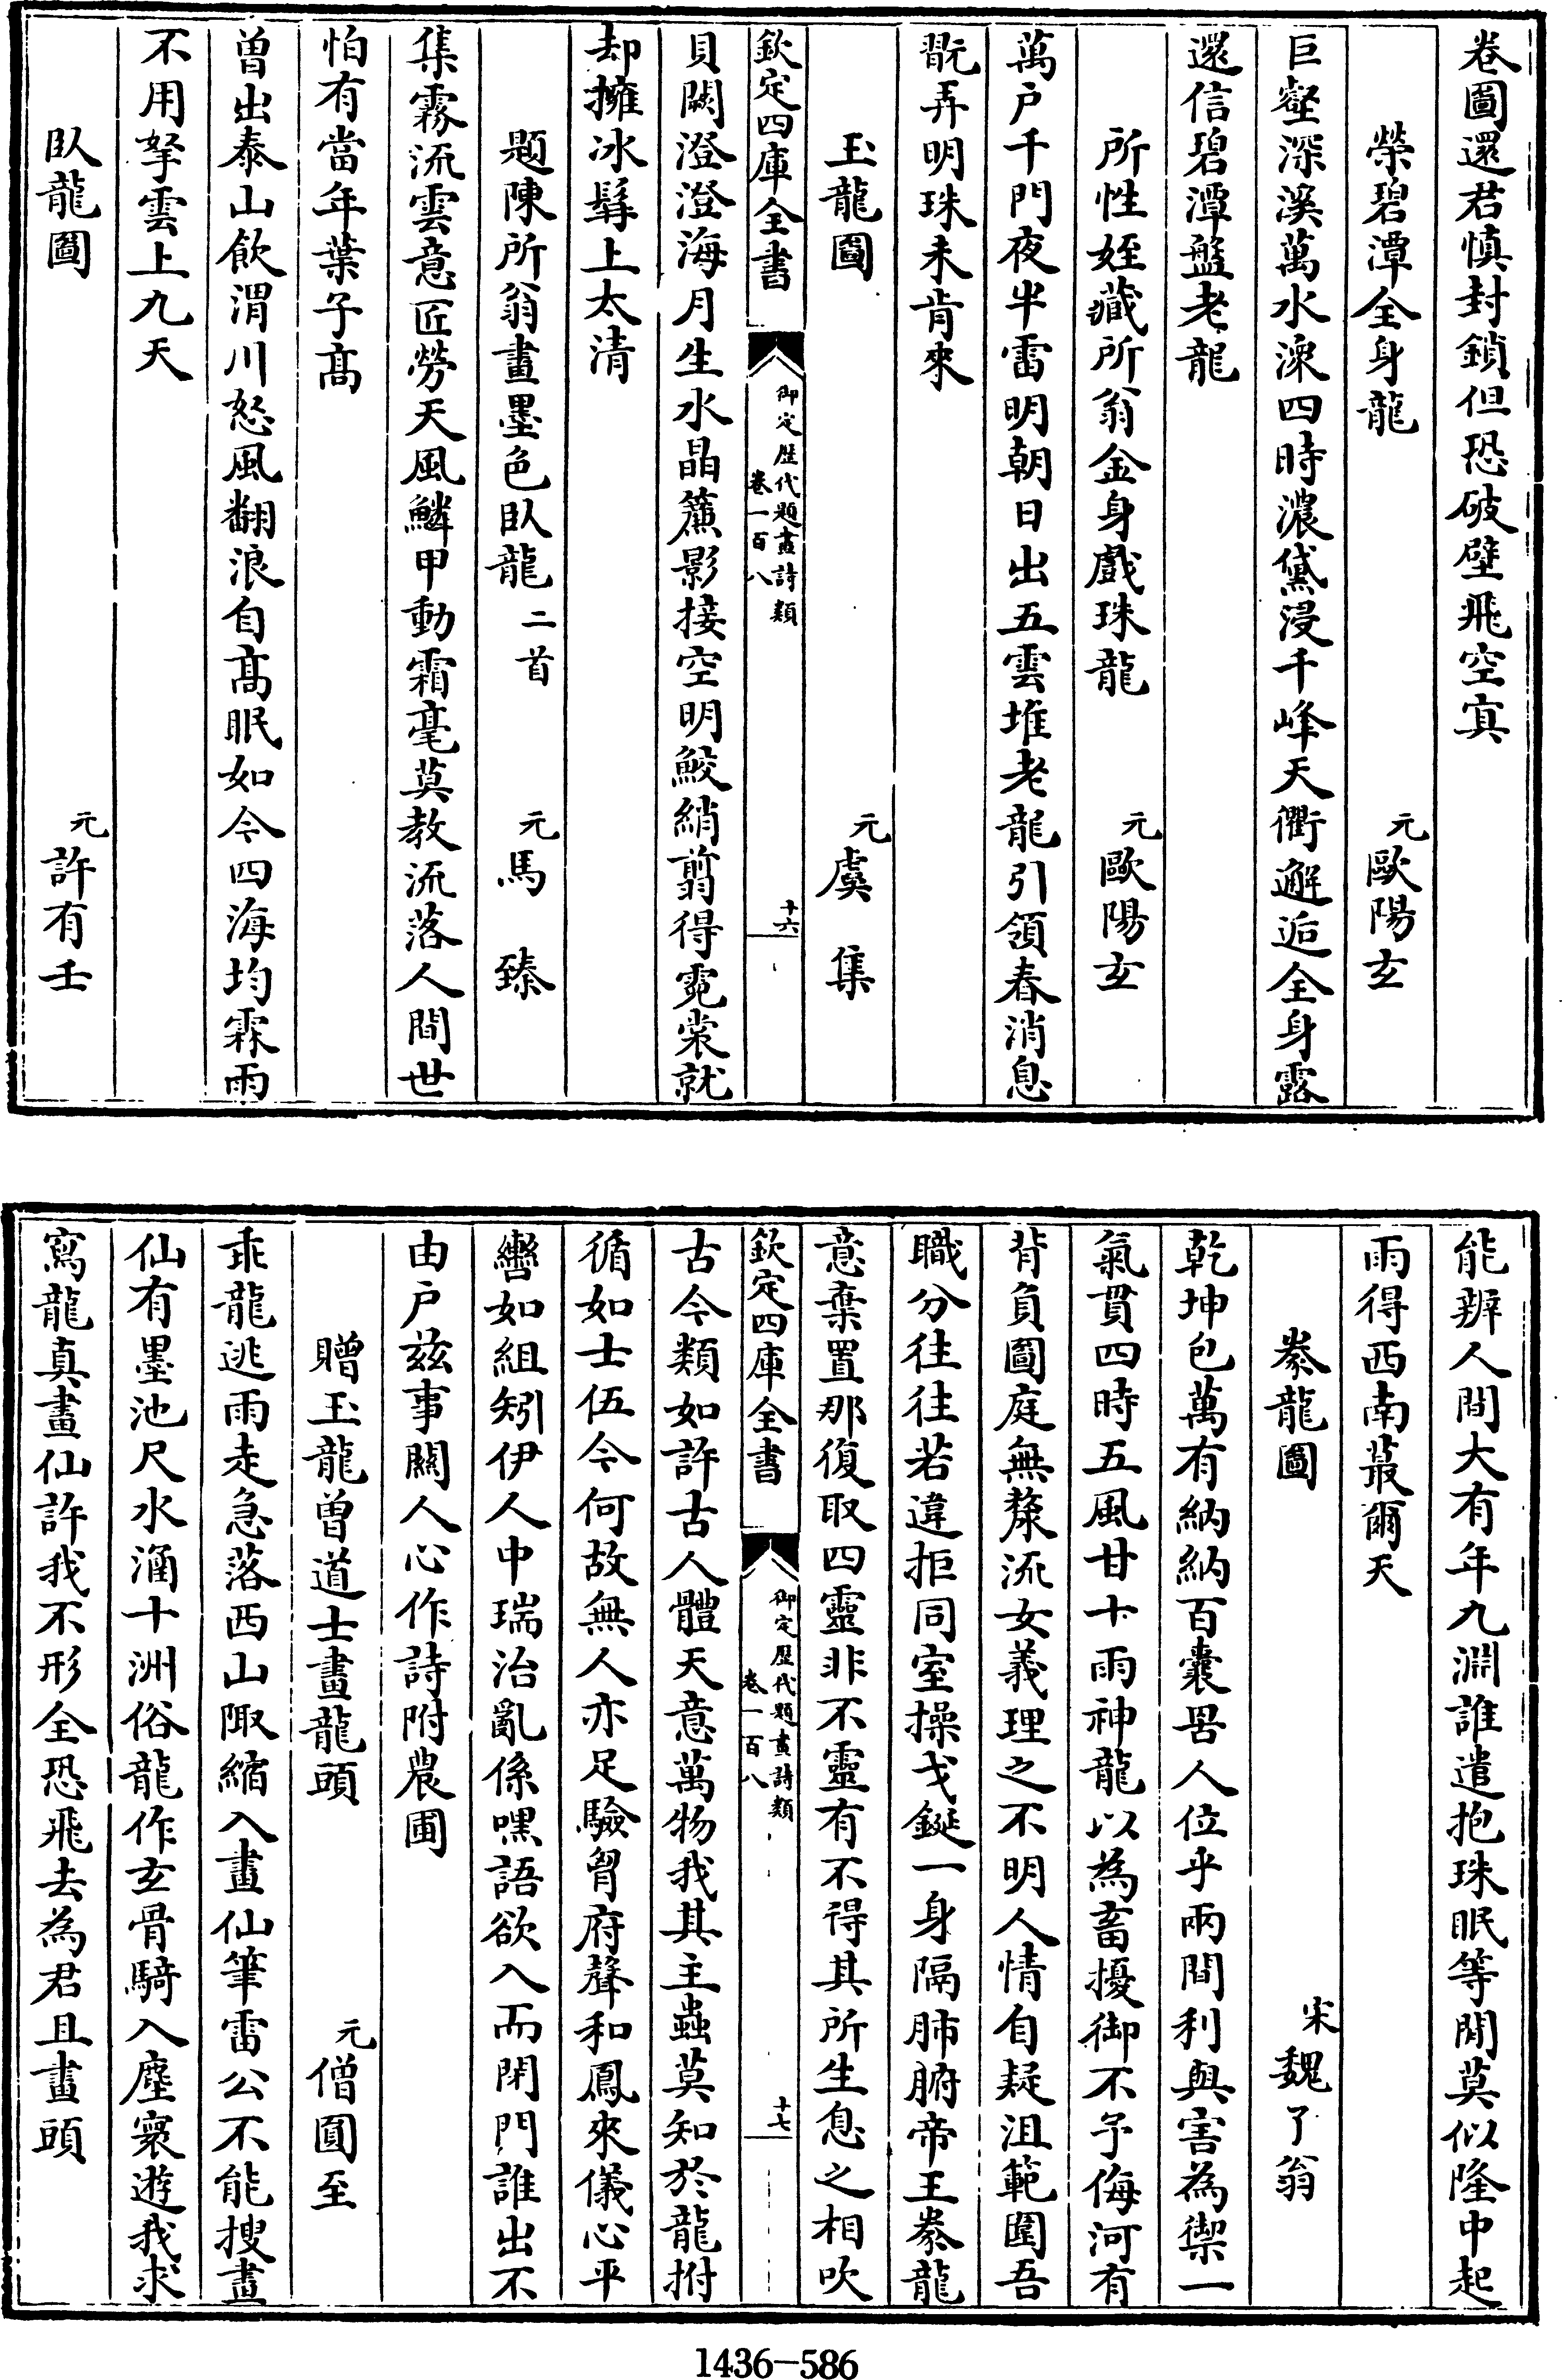 卷圖還君慎封鎖但恐破壁飛空㝠
榮碧潭全身龍　元歐陽玄
巨壑深溪萬水湅四時濃黛浸千峰天衢邂逅全身露
還信碧潭盤老龍
所性姪藏所翁金身戲珠龍　元歐陽玄
萬户千門夜半雷明朝日出五雲堆老龍引領春消息
翫弄明珠未肯來
玉龍圖　元虞集
欽定四庫全書　御定歴代題畫詩類　卷一百八　十六
貝闕澄澄海月生水晶簾影接空明鮫綃翦得霓裳就
却擁冰髯上太清
題陳所翁畫墨色臥龍二首　元馬臻
集霧流雲意匠勞天風鱗甲動霜毫莫教流落人間世
怕有當年葉子髙
曾出泰山飲渭川怒風翻浪自髙眠如今四海均霖雨
不用拏雲上九天
臥龍圖　元許有壬
能辨人間大有年九淵誰遣抱珠眠等閒莫似隆中起
雨得西南蕞爾天
豢龍圖　宋魏了翁
乾坤包萬有納納百囊罟人位乎兩間利與害為禦一
氣貫四時五風甘十雨神龍以為畜擾御不予侮河有
背負圖庭無漦流女義理之不明人情自疑沮範圍吾
職分往往若違拒同室操戈鋋一身隔肺腑帝王豢龍
意棄置那復取四靈非不靈有不得其所生息之相吹
欽定四庫全書　御定歴代題畫詩類　卷一百八　十七
古今類如許古人體天意萬物我其主蟲莫知於龍拊
循如士伍今何故無人亦足驗胷府聲和鳳來儀心平
轡如組矧伊人中瑞治亂係嘿語欲入而閉門誰出不
由户兹事關人心作詩附農圃
贈玉龍曾道士畫龍頭　元僧圓至
乖龍逃雨走急落西山陬縮入畫仙筆雷公不能搜畫
仙有墨池尺水涵十洲俗龍作玄骨騎入塵寰遊我求
寫龍真畫仙許我不形全恐飛去為君且畫頭
1436-586